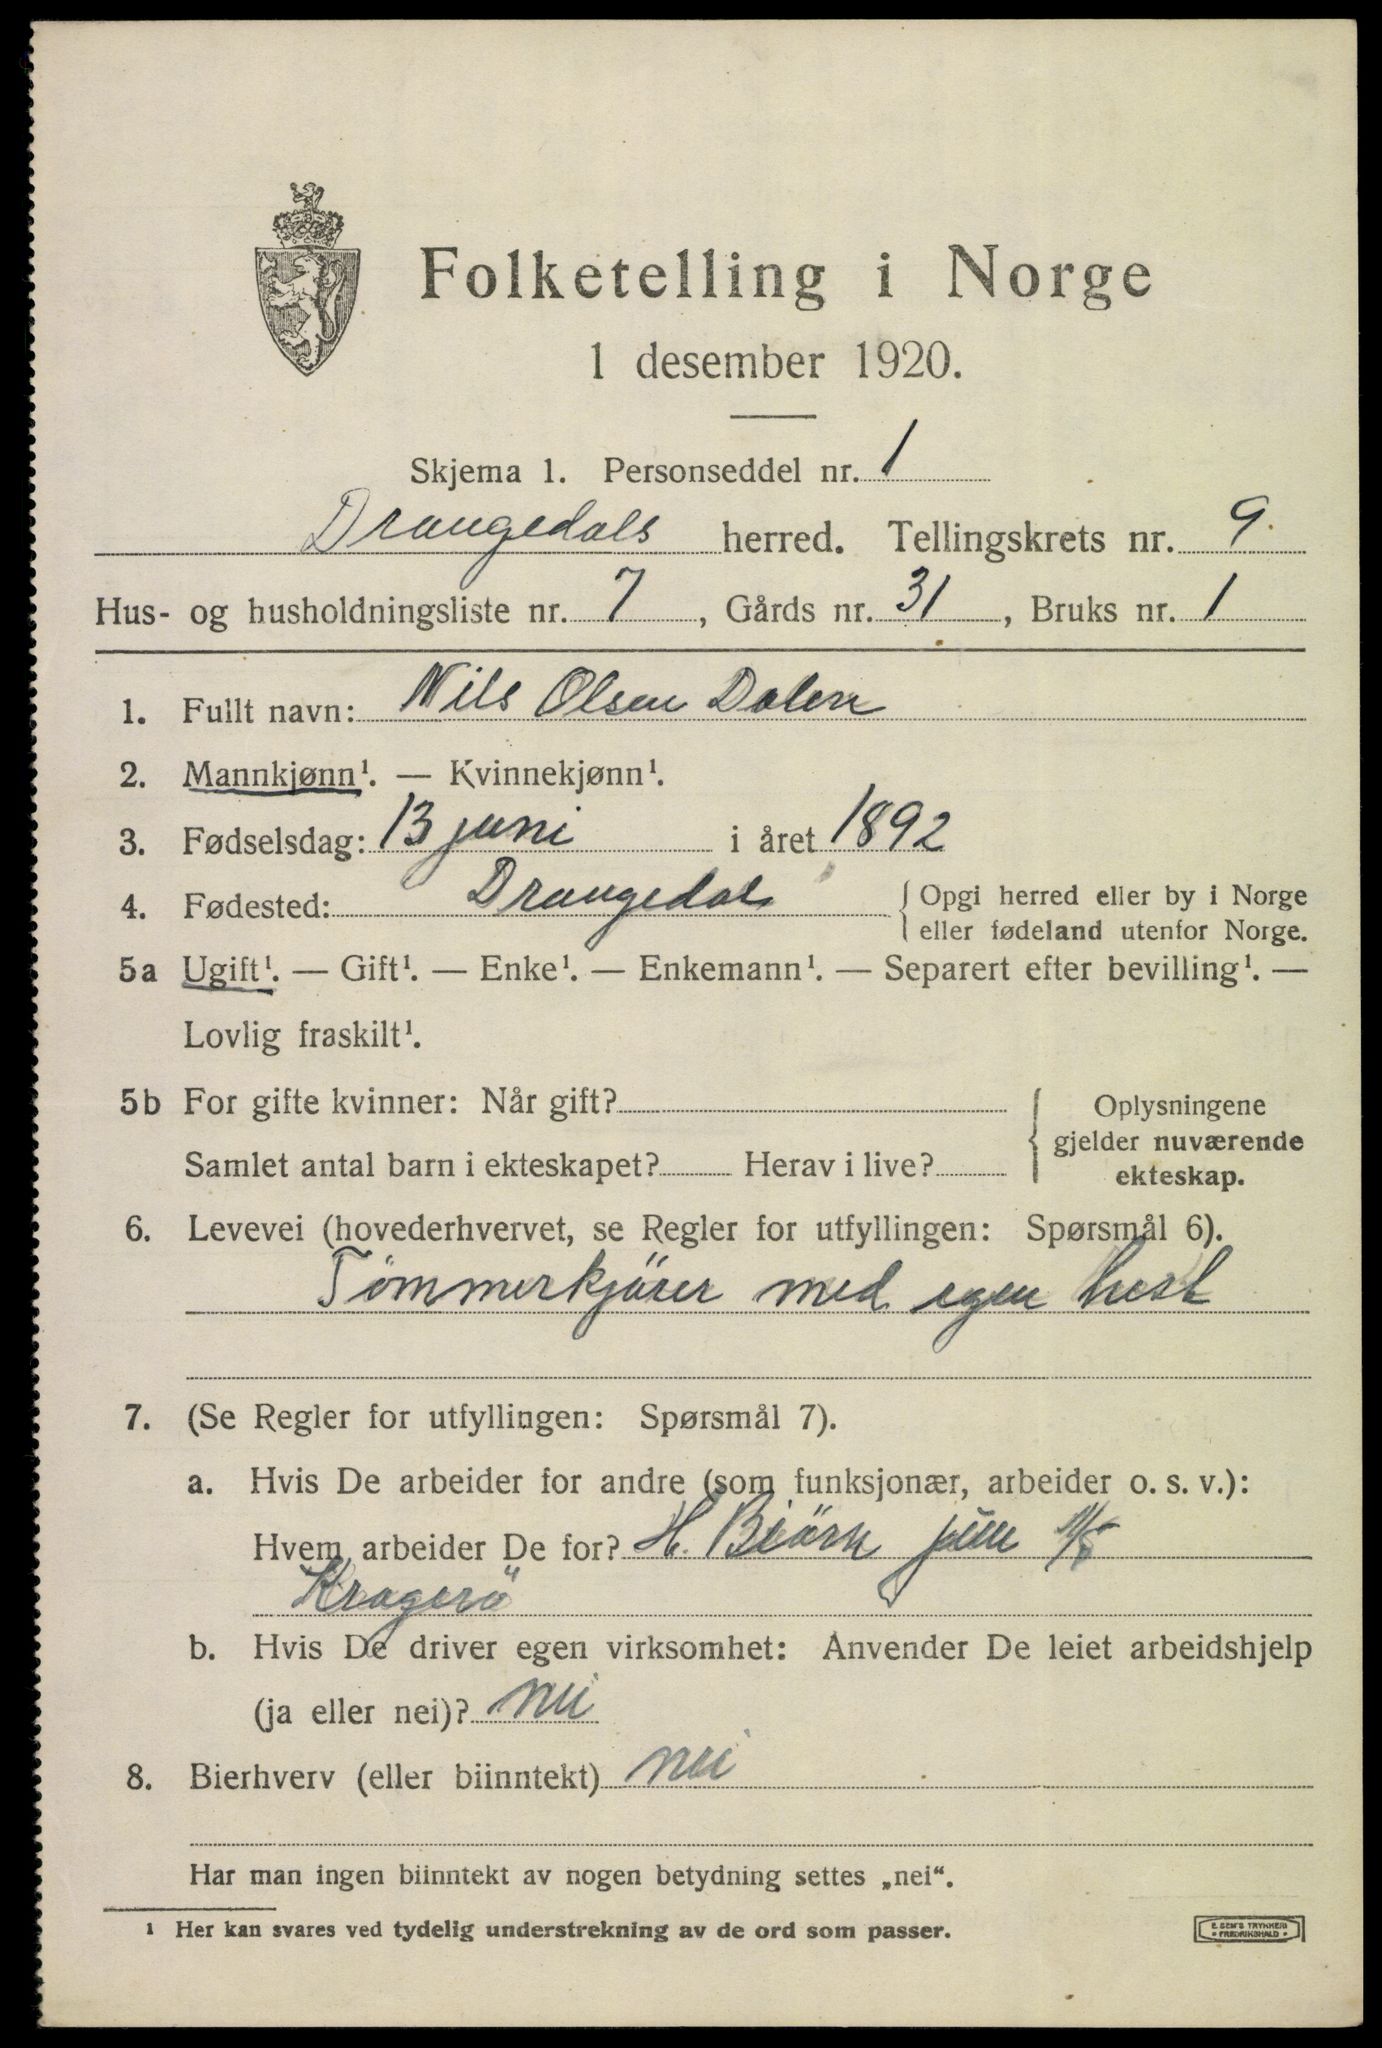 Folketelling i Norge
1 desember 1920.
Skjema 1. Personseddel nr. 1
Drangedals herred. Tellingskrets nr. 9.
Hus- og husholdningsliste nr. 7, Gårds nr. 31, Bruks nr. 1
1. Fullt navn: Nils Olsen Dalen
2. Mannkjønn¹. — Kvinnekjønn¹.
3. Fødselsdag: 13 juni i året 1892
4. Fødested: Drangedal { Opgi herred eller by i Norge
eller fødeland utenfor Norge.
5a Ugift¹. — Gift¹. — Enke¹. — Enkemann¹. — Separert efter bevilling¹. —
Lovlig fraskilt¹.
5b For gifte kvinner: Når gift?
Samlet antal barn i ekteskapet? Herav i live?
{ Oplysningene
gjelder nuværende
ekteskap.
6. Levevei (hovederhvervet, se Regler for utfyllingen: Spørsmål 6).
Tömmerkjörer med egen hest
7. (Se Regler for utfyllingen: Spørsmål 7).
a. Hvis De arbeider for andre (som funksjonær, arbeider o. s. v.):
Hvem arbeider De for? H. Biörn jun A/S
Kragerö
b. Hvis De driver egen virksomhet: Anvender De leiet arbeidshjelp
(ja eller nei)? nei
8. Bierhverv (eller biinntekt) nei
Har man ingen biinntekt av nogen betydning settes „nei“.
¹ Her kan svares ved tydelig understrekning av de ord som passer.
E. SEM'S TRYKKERI
FREDRIKSHALD